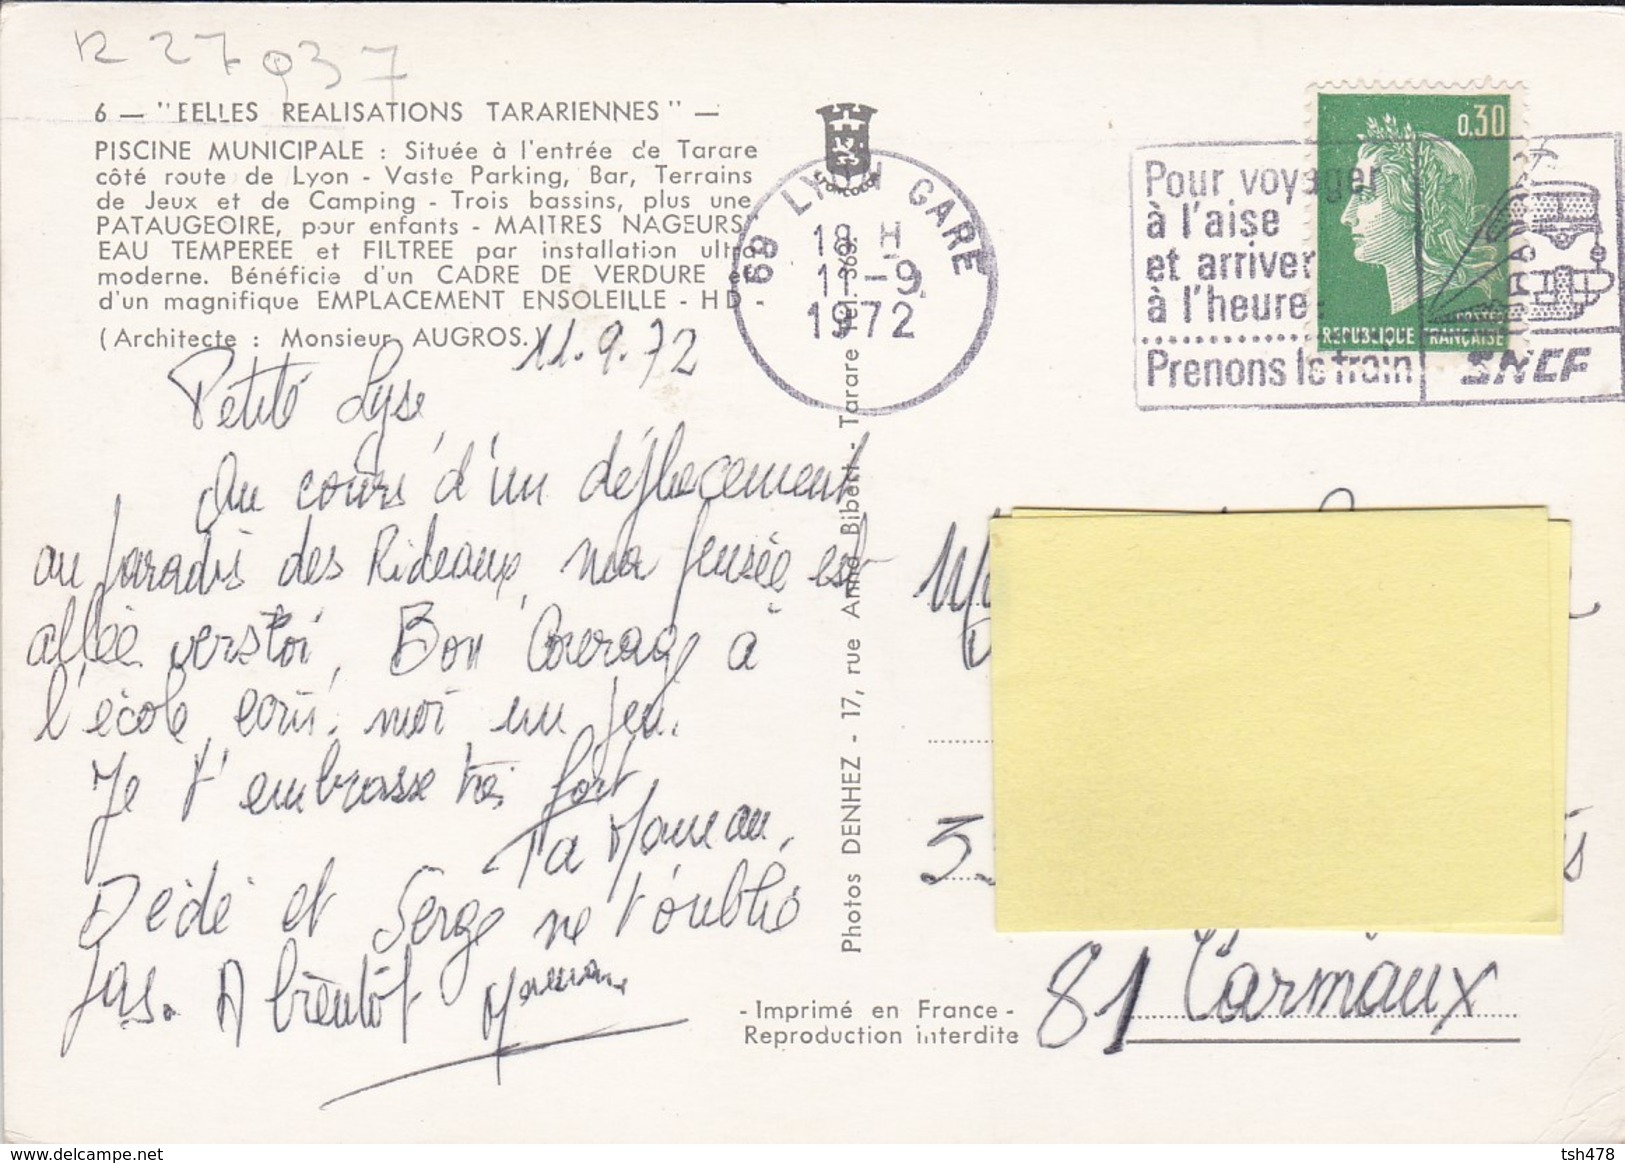 R 27937
6 — "BELLES REALISATIONS TARARIENNES" —
PISCINE MUNICIPALE : Située à l'entrée de Tarare
côté route de Lyon - Vaste Parking, Bar, Terrains
de Jeux et de Camping - Trois bassins, plus une
PATAUGEOIRE, pour enfants - MAITRES NAGEURS,
EAU TEMPEREE et FILTREE par installation ultra
moderne. Bénéficie d'un CADRE DE VERDURE et
d'un magnifique EMPLACEMENT ENSOLEILLE - HD -
(Architecte : Monsieur AUGROS.)
11.9.72
Petite Lyse
Au cours d'un déplacement
au paradis des Rideaux, ma pensée est
allée vers toi, Bon Courage à
l'école, écris moi un peu.
Je t'embrasse très fort
Ta Maman,
Dédé et Serge ne t'oublie
pas. A bientôt Maman
Photos DENHEZ - 17, rue Anna Bibert - Tarare Tél. 369
69 LYON GARE
19 H
11-9
1972
Pour voyager
à l'aise
et arriver
à l'heure :
Prenons le train
SNCF
0,30
POSTES
REPUBLIQUE FRANÇAISE
3
81 Carmaux
- Imprimé en France -
Reproduction interdite
tsh478
www.delcampe.net